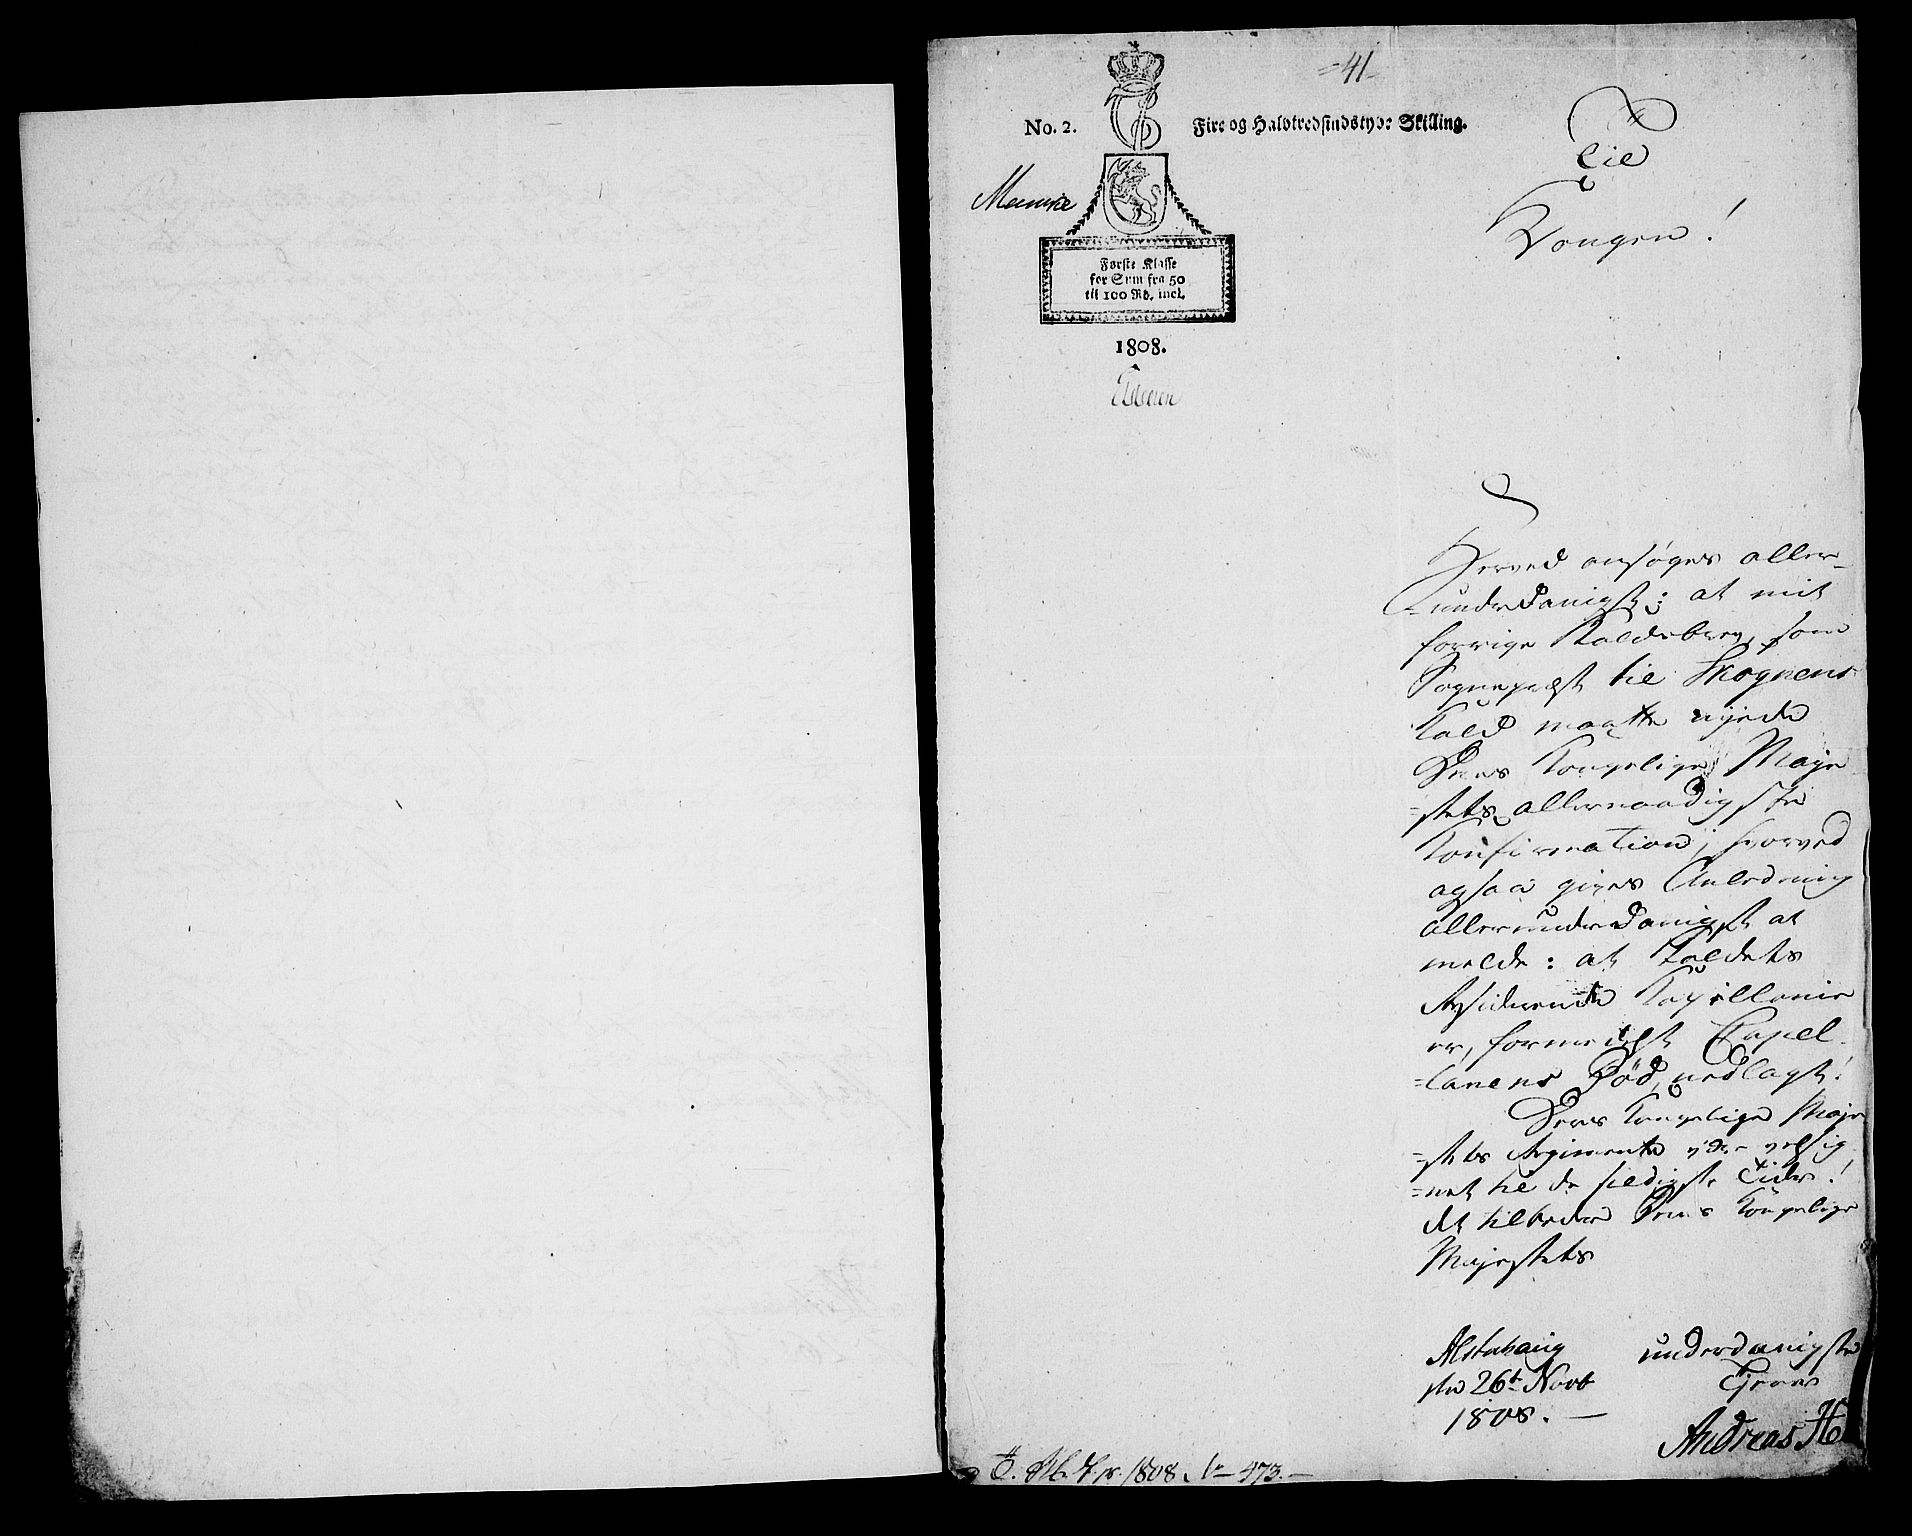 =41=
No. 2.
Fire og Halvtredsindstyve Skilling.
Første Klasse
for Sum fra 50
til 100 Rd. incl.
1808.
Til
Kongen!
Herved ansøges aller-
=underdanigst: at mit
forrige Kaldsbrev, som
Sognepræst til Skognens
Kald maatte nyde
Deres Kongelige Maje
=stets allernaadigste
Confirmation; hvorved
ogsaa gives Anledning
allerunderdanigst at
melde: at Kaldets
Residerende Capellanie
er, formedelst Capel-
=lanens Død, nedlagt!
Deres Kongelige Maje
=stets Regimente vær velsig
=net til de sildigste Tider!
det tilbeder Deres Kongelige
Majestets
Alstahaug
den 26t Novb
1808. —
underdanigste
Tjener
Andreas H
1808 No 473. —